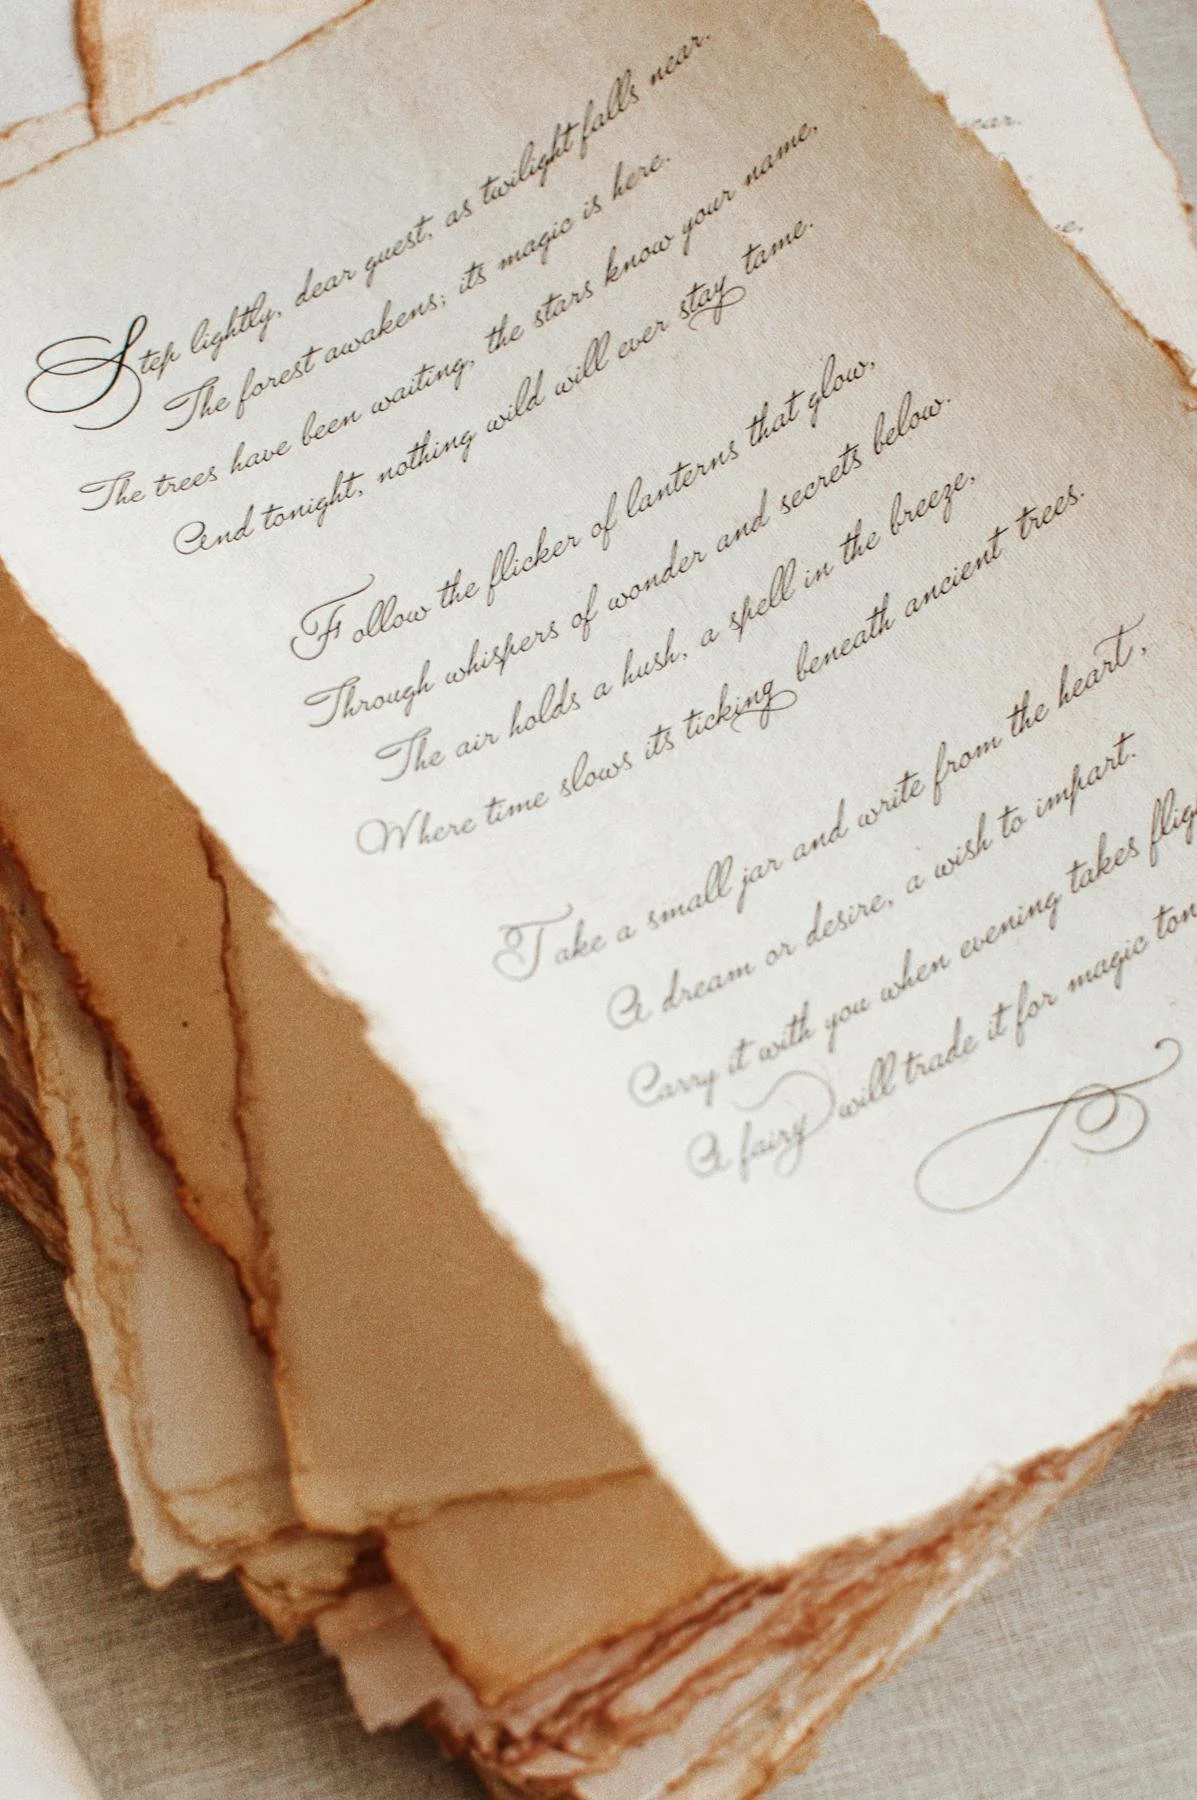 Step lightly, dear guest, as twilight falls near.
The forest awakens; its magic is here.
The trees have been waiting, the stars know your name,
And tonight, nothing wild will ever stay tame.
Follow the flicker of lanterns that glow,
Through whispers of wonder and secrets below.
The air holds a hush, a spell in the breeze,
Where time slows its ticking beneath ancient trees.
Take a small jar and write from the heart,
A dream or desire, a wish to impart.
Carry it with you when evening takes
A fairy will trade it for magic